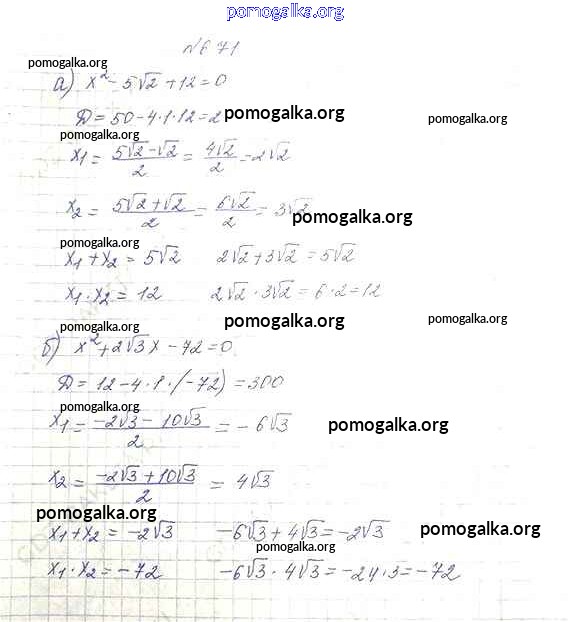 pomogalka.org
№671
pomogalka.org
а) x² - 5√2 + 12 = 0
Д = 50 - 4·1·12 = 2 pomogalka.org pomogalka.org
pomogalka.org
x₁ = (5√2 - √2)/2 = 4√2/2 = 2√2
x₂ = (5√2 + √2)/2 = 6√2/2 = 3√2
pomogalka.org
pomogalka.org
x₁ + x₂ = 5√2 2√2 + 3√2 = 5√2
x₁ · x₂ = 12 2√2 · 3√2 = 6·2 = 12
pomogalka.org pomogalka.org pomogalka.org
б) x² + 2√3x - 72 = 0
Д = 12 - 4·1·(-72) = 300
pomogalka.org
x₁ = (-2√3 - 10√3)/2 = -6√3 pomogalka.org
x₂ = (-2√3 + 10√3)/2 = 4√3
pomogalka.org
x₁ + x₂ = -2√3 -6√3 + 4√3 = -2√3 pomogalka.org
pomogalka.org
x₁ · x₂ = -72 -6√3 · 4√3 = -24·3 = -72